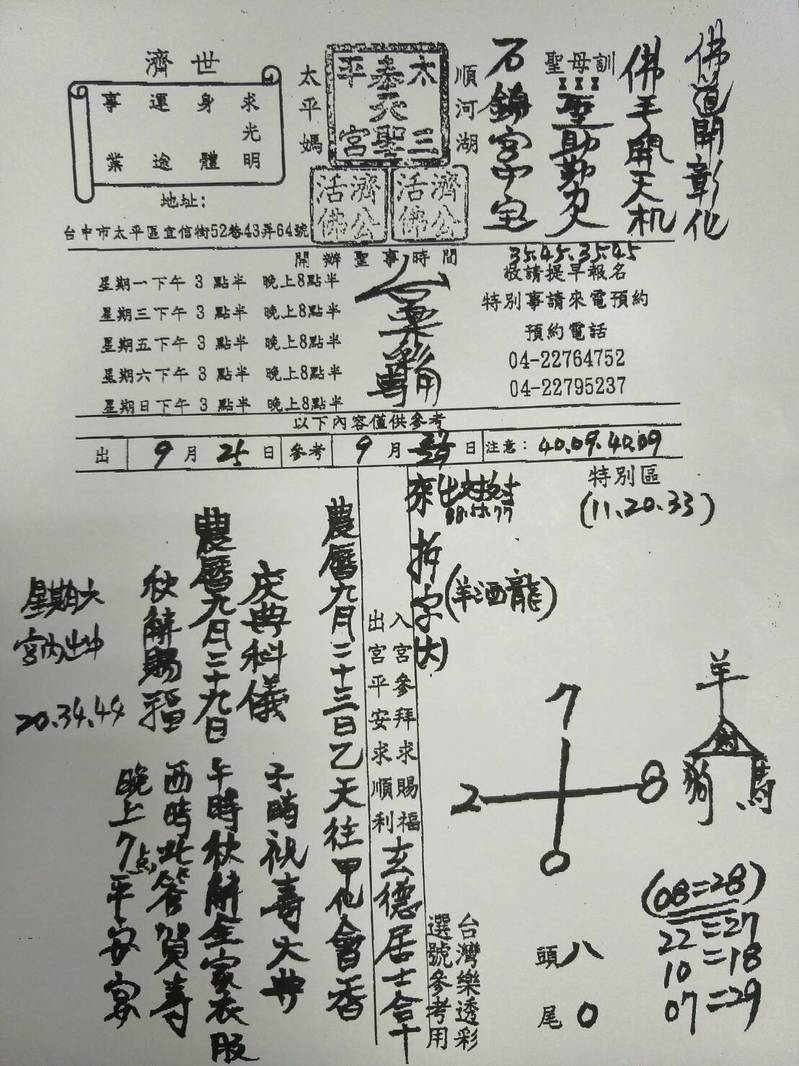 佛道開彰化
佛手開天机
聖母訓
聖助勤人
石錦宮中宝
順河湖
太三
奉天聖
平宮
太平媽
濟公活佛
濟公活佛
濟世
求光明
身體
運途
事業
地址:
台中市太平區宜信街52巷43弄64號
35.45.35.45
開辦聖事時間
星期一下午 3 點半 晚上8點半
星期三下午 3 點半 晚上8點半
星期五下午 3 點半 晚上8點半
星期六下午 3 點半 晚上8點半
星期日下午 3 點半 晚上8點半
敬請提早報名
特別事請來電預約
預約電話
04-22764752
04-22795237
以下內容僅供參考
出 9 月 25 日 參考 9 月 日 注意: 40.09.40.09
特別區
(11.20.33)
拆字
(羊酒龍)
羊
狗 馬
7
2 8
0
(08=28)
22=27
10=18
07=29
頭 八
尾 0
台灣樂透彩
選號參考用
入宮參拜求賜福
出宮平安求順利
玄德居士合十
農曆九月二十三日乙天往甲仙會香
慶典科儀
子時祝壽大典
農曆九月二十九日
午時秋解全家衣服
秋解賜福
酉時此答賀壽
晚上7点平安宴
星期六
宮內出中
20.34.44